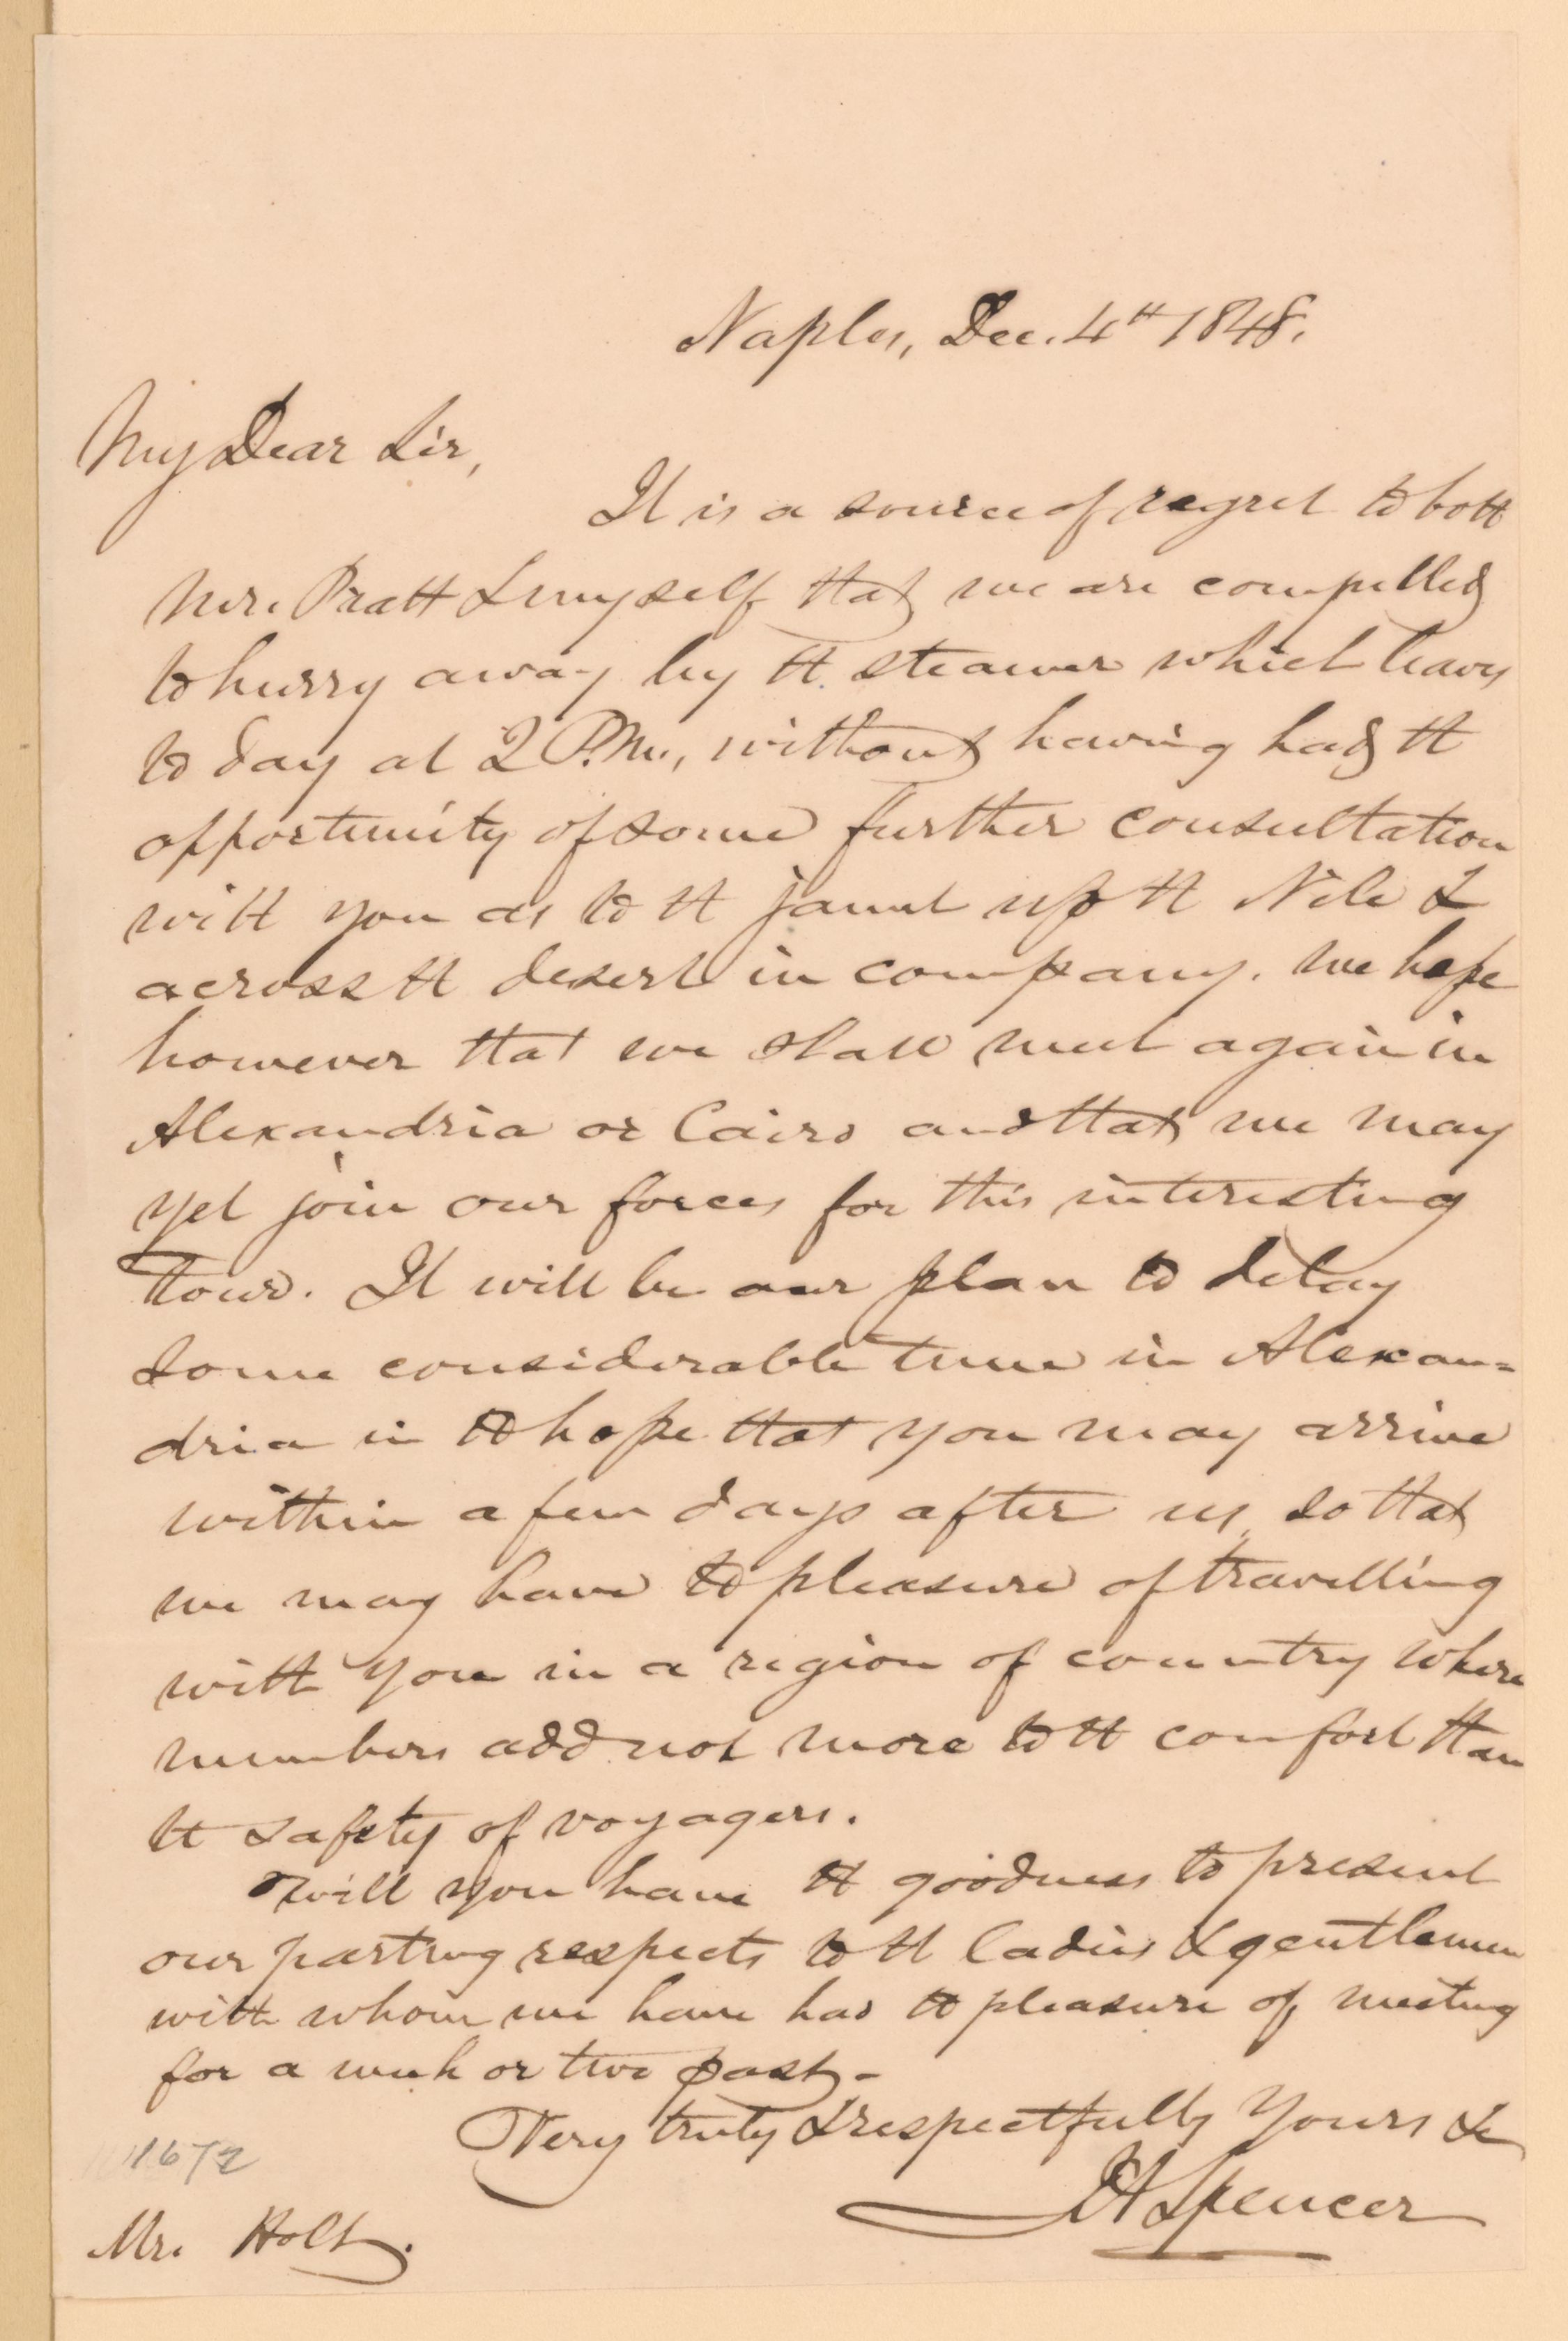 Naples, Dec. 4th 1848.
My Dear Sir,
It is a source of regret to both
Mr. Pratt & myself that we are compelled
to hurry away by th. steamer which leaves
to day at 2 P.M., without having had th
opportunity of some further consultation
with you as to th jaunt up th Nile &
across th desert in company. We hope
however that we shall meet again in
Alexandria or Cairo and that we may
yet join our forces for this interesting
tour. It will be our plan to delay
some considerable time in Alexan=
dria in th hope that you may arrive
within a few days after us, so that
we may have th pleasure of travelling
with you in a region of country where
numbers add not more to th comfort than
th safety of voyagers.
Will you have th goodness to present
our parting respects to th ladies & gentlemen
with whom we have had th pleasure of meeting
for a week or two past.-
Very truly & respectfully Yours &c
JA Spencer
1672
Mr. Holt.